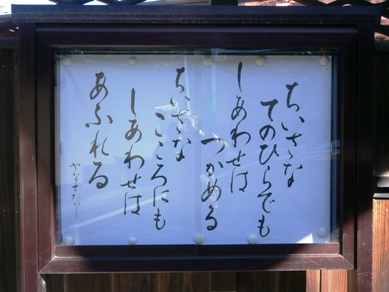 ちいさな
てのひらでも
しあわせは
つかめる
ちいさな
こころにも
しあわせは
あふれる
やなせたかし